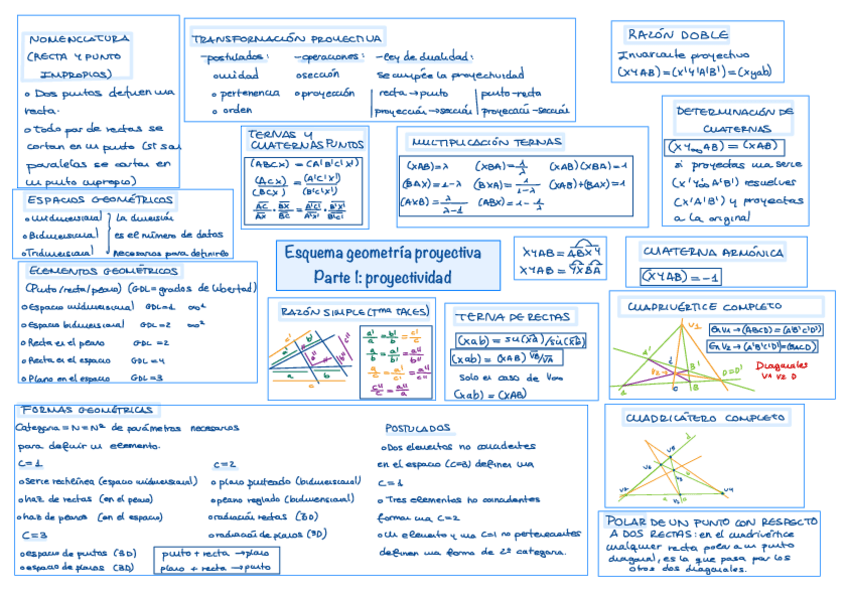 NOMENCLATURA
(RECTA Y PUNTO
IMPROPIOS)
o Dos puntos definen una
recta.
o Todo par de rectas se
cortan en un punto (si son
paralelas se cortan en
un punto impropio)
TRANSFORMACIÓN PROYECTIVA
-postulados:
o unidad
o pertenencia
o orden
-operaciones:
o sección
o proyección
-ley de dualidad:
se cumple la proyectividad
recta → punto
proyección → sección
punto-recta
proyección-sección
RAZÓN DOBLE
Invariante proyectivo
(XYAB)=(X'Y'A'B')=(xyab)
TERNAS Y
CUATERNAS PUNTOS
(ABCX) = (A'B'C'X')
(ACX) = (A'C'X')
(BCX) (B'C'X')
AC/AX · BX/BC = A'C'/A'X' · B'X'/B'C'
MULTIPLICACIÓN TERNAS
(XAB)=λ (XBA)=1/λ (XAB)(XBA)=1
(BAX)=1-λ (BXA)=1/1-λ (XAB)+(BAX)=1
(AXB)=λ/λ-1 (ABX)=1-1/λ
DETERMINACIÓN DE
CUATERNAS
(XY∞AB) = (XAB)
si proyectas una serie
(X'Y'∞A'B') resuelves
(X'A'B') y proyectas
a la original
ESPACIOS GEOMÉTRICOS
o Unidimensional
o Bidimensional
o Tridimensional
la dimensión
es el número de datos
necesarios para definirlo
Esquema geometría proyectiva
Parte 1: proyectividad
XYAB = ABXY
XYAB = YXBA
CUATERNA ARMÓNICA
(XYAB) = -1
ELEMENTOS GEOMÉTRICOS
(Punto/recta/plano) (GDL=grados de libertad)
o Espacio unidimensional GDL=1 ∞¹
o Espacio bidimensional GDL=2 ∞²
o Recta en el plano GDL=2
o Recta en el espacio GDL=4
o Plano en el espacio GDL=3
RAZÓN SIMPLE (Tma TALES)
TERNA DE RECTAS
(xab) = sen(xa)/sen(xb)
(xab) = (XAB) VB/VA
Solo en caso de V∞
(xab) = (XAB)
CUADRIVÉRTICE COMPLETO
En V1 → (ABCD) = (A'B'C'D')
En V2 → (A'B'C'D')=(BACD)
Diagonales
V1 V2 D
FORMAS GEOMÉTRICAS
Categoría = N = Nº de parámetros necesarios
para definir un elemento.
C=1
o serie rectilínea (espacio unidimensional)
o haz de rectas (en el plano)
o haz de planos (en el espacio)
C=2
o plano punteado (bidimensional)
o plano reglado (bidimensional)
o radiación rectas (3D)
o radiación de planos (3D)
C=3
o espacio de puntos (3D)
o espacio de planos (3D)
punto + recta → plano
plano + recta → punto
POSTULADOS
o Dos elementos no coincidentes
en el espacio (C=3) definen una
C=1
o Tres elementos no coincidentes
forman una C=2
o Un elemento y una C=1 no pertenecientes
definen una forma de 2º categoría.
CUADRILÁTERO COMPLETO
POLAR DE UN PUNTO CON RESPECTO
A DOS RECTAS: en el cuadrivértice
cualquier recta polar a un punto
diagonal, es la que pasa por los
otros dos diagonales.